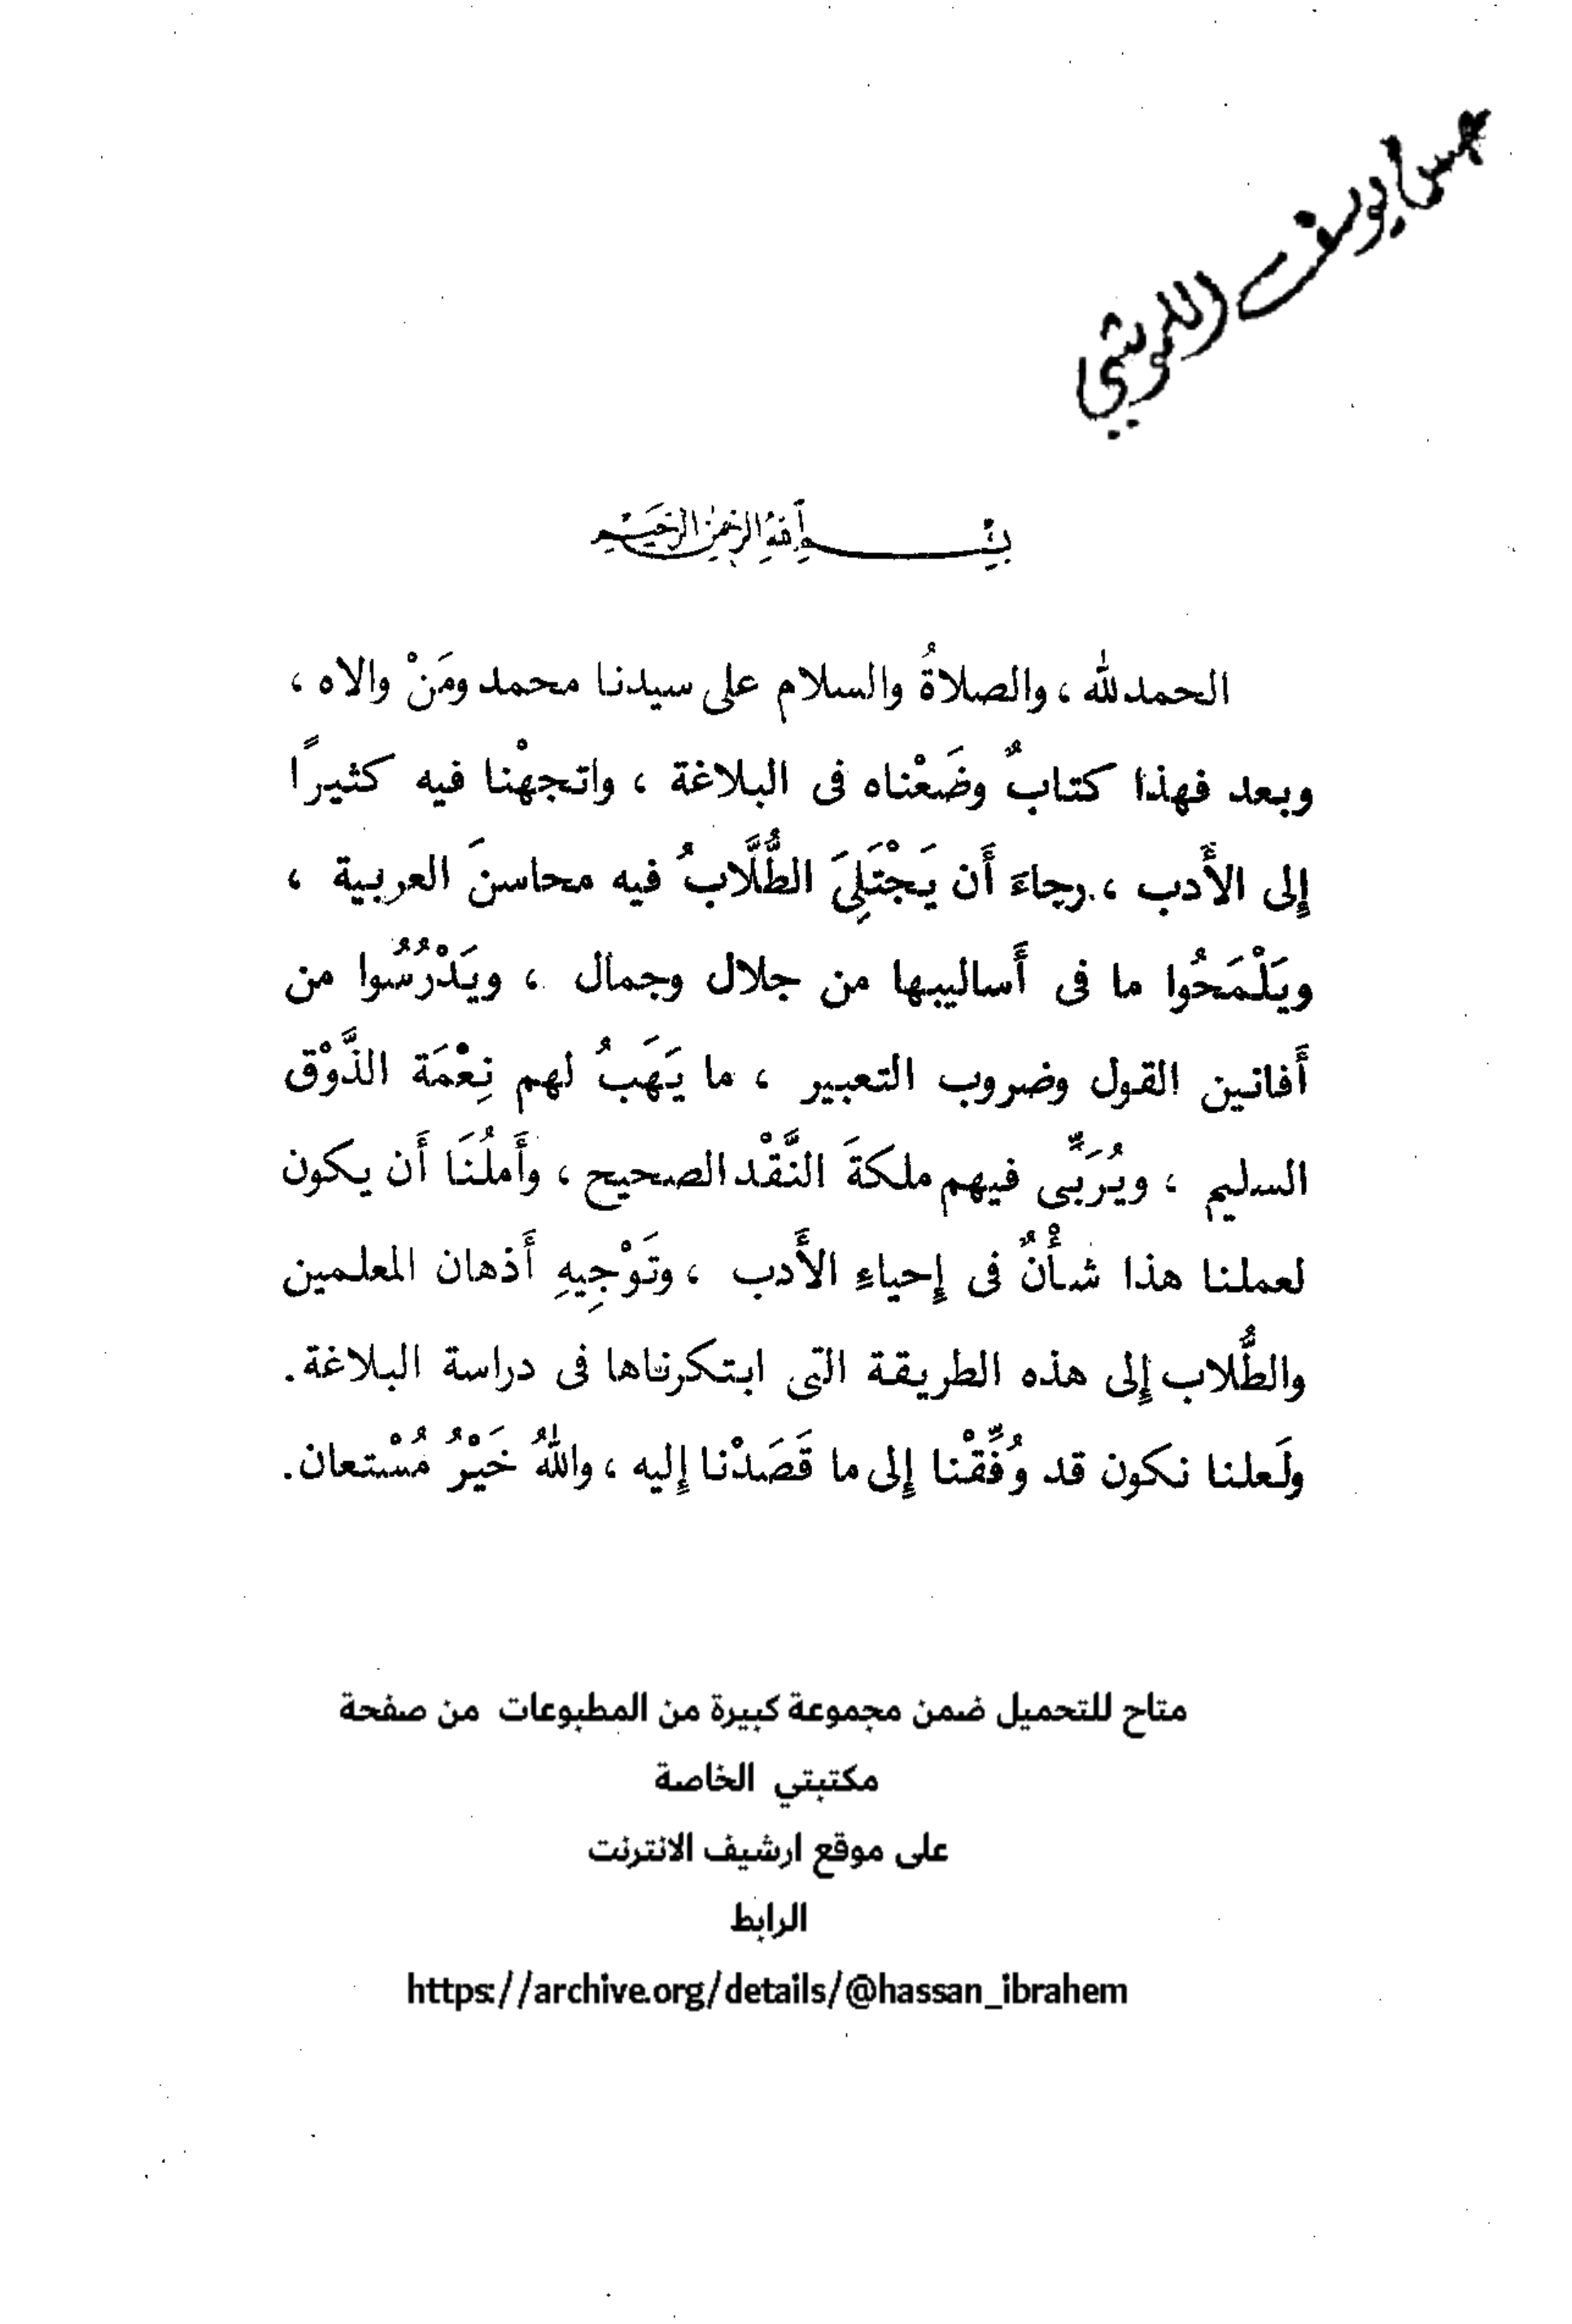 بسم الله الرحمن الرحيم
الحمد لله ، والصلاةُ والسلام على سيدنا محمد ومَنْ والاه ،
وبعد فهذا كتابٌ وضَعْناه فى البلاغة ، واتجهْنا فيه كثيرًا
إلى الأَدب ، رجاءَ أَن يَجْتَلِىَ الطُّلَّابُ فيه محاسنَ العربية ،
ويَلْمَحُوا ما فى أَساليبها من جلال وجمال ، ويَدْرُسُوا من
أَفانين القول وضروب التعبير ، ما يَهَبُ لهم نِعْمَة الذَّوْق
السليم ، ويُرَبِّى فيهم ملكةَ النَّقْد الصحيح ، وأَملُنَا أَن يكون
لعملنا هذا شأْنٌ فى إِحياءِ الأَدب ، وتَوْجِيهِ أَذهان المعلمين
والطُّلاب إِلى هذه الطريقة التى ابتكرناها فى دراسة البلاغة.
ولَعلنا نكون قد وُفِّقْنا إِلى ما قَصَدْنا إِليه ، واللهُ خَيْرُ مُسْتعان.
متاح للتحميل ضمن مجموعة كبيرة من المطبوعات من صفحة
مكتبتي الخاصة
على موقع ارشيف الانترنت
الرابط
https://archive.org/details/@hassan_ibrahem